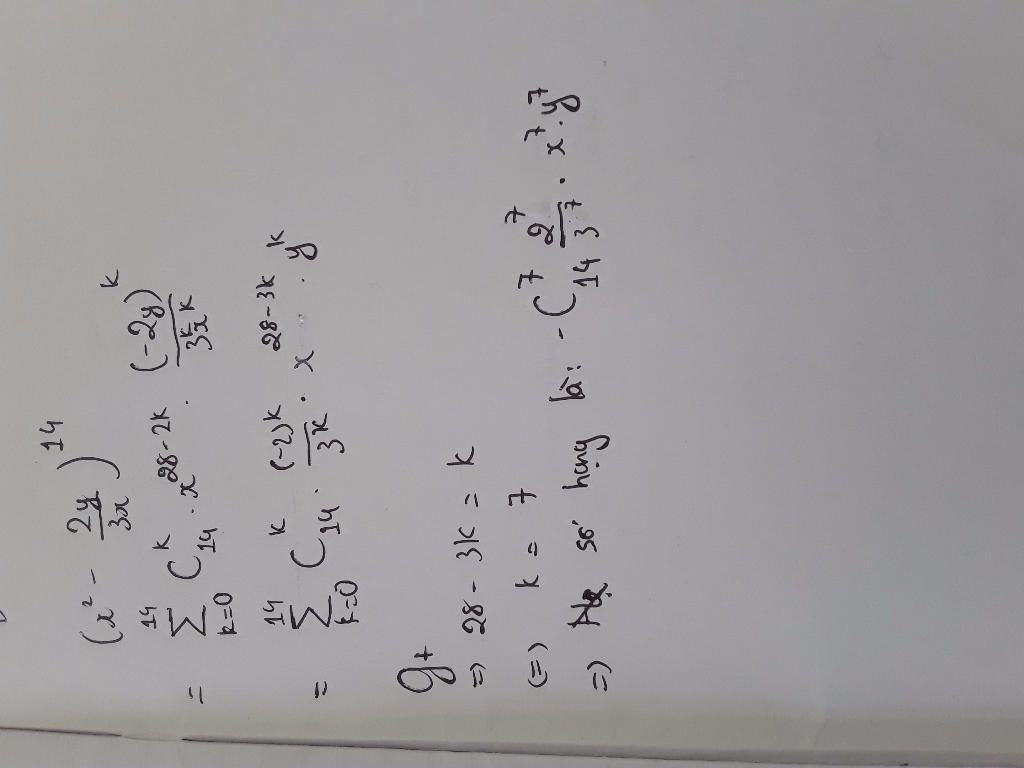 (x² - 2y/3x)^14
= ∑_{k=0}^{14} C_{14}^{k} . x^{28-2k} . (-2y)^k/3^k x^k
= ∑_{k=0}^{14} C_{14}^{k} . (-2)^k/3^k . x^{28-3k} . y^k
gt
=> 28 - 3k = k
(=) k = 7
=> số hạng là: - C_{14}^{7} 2^7/3^7 . x^7 . y^7